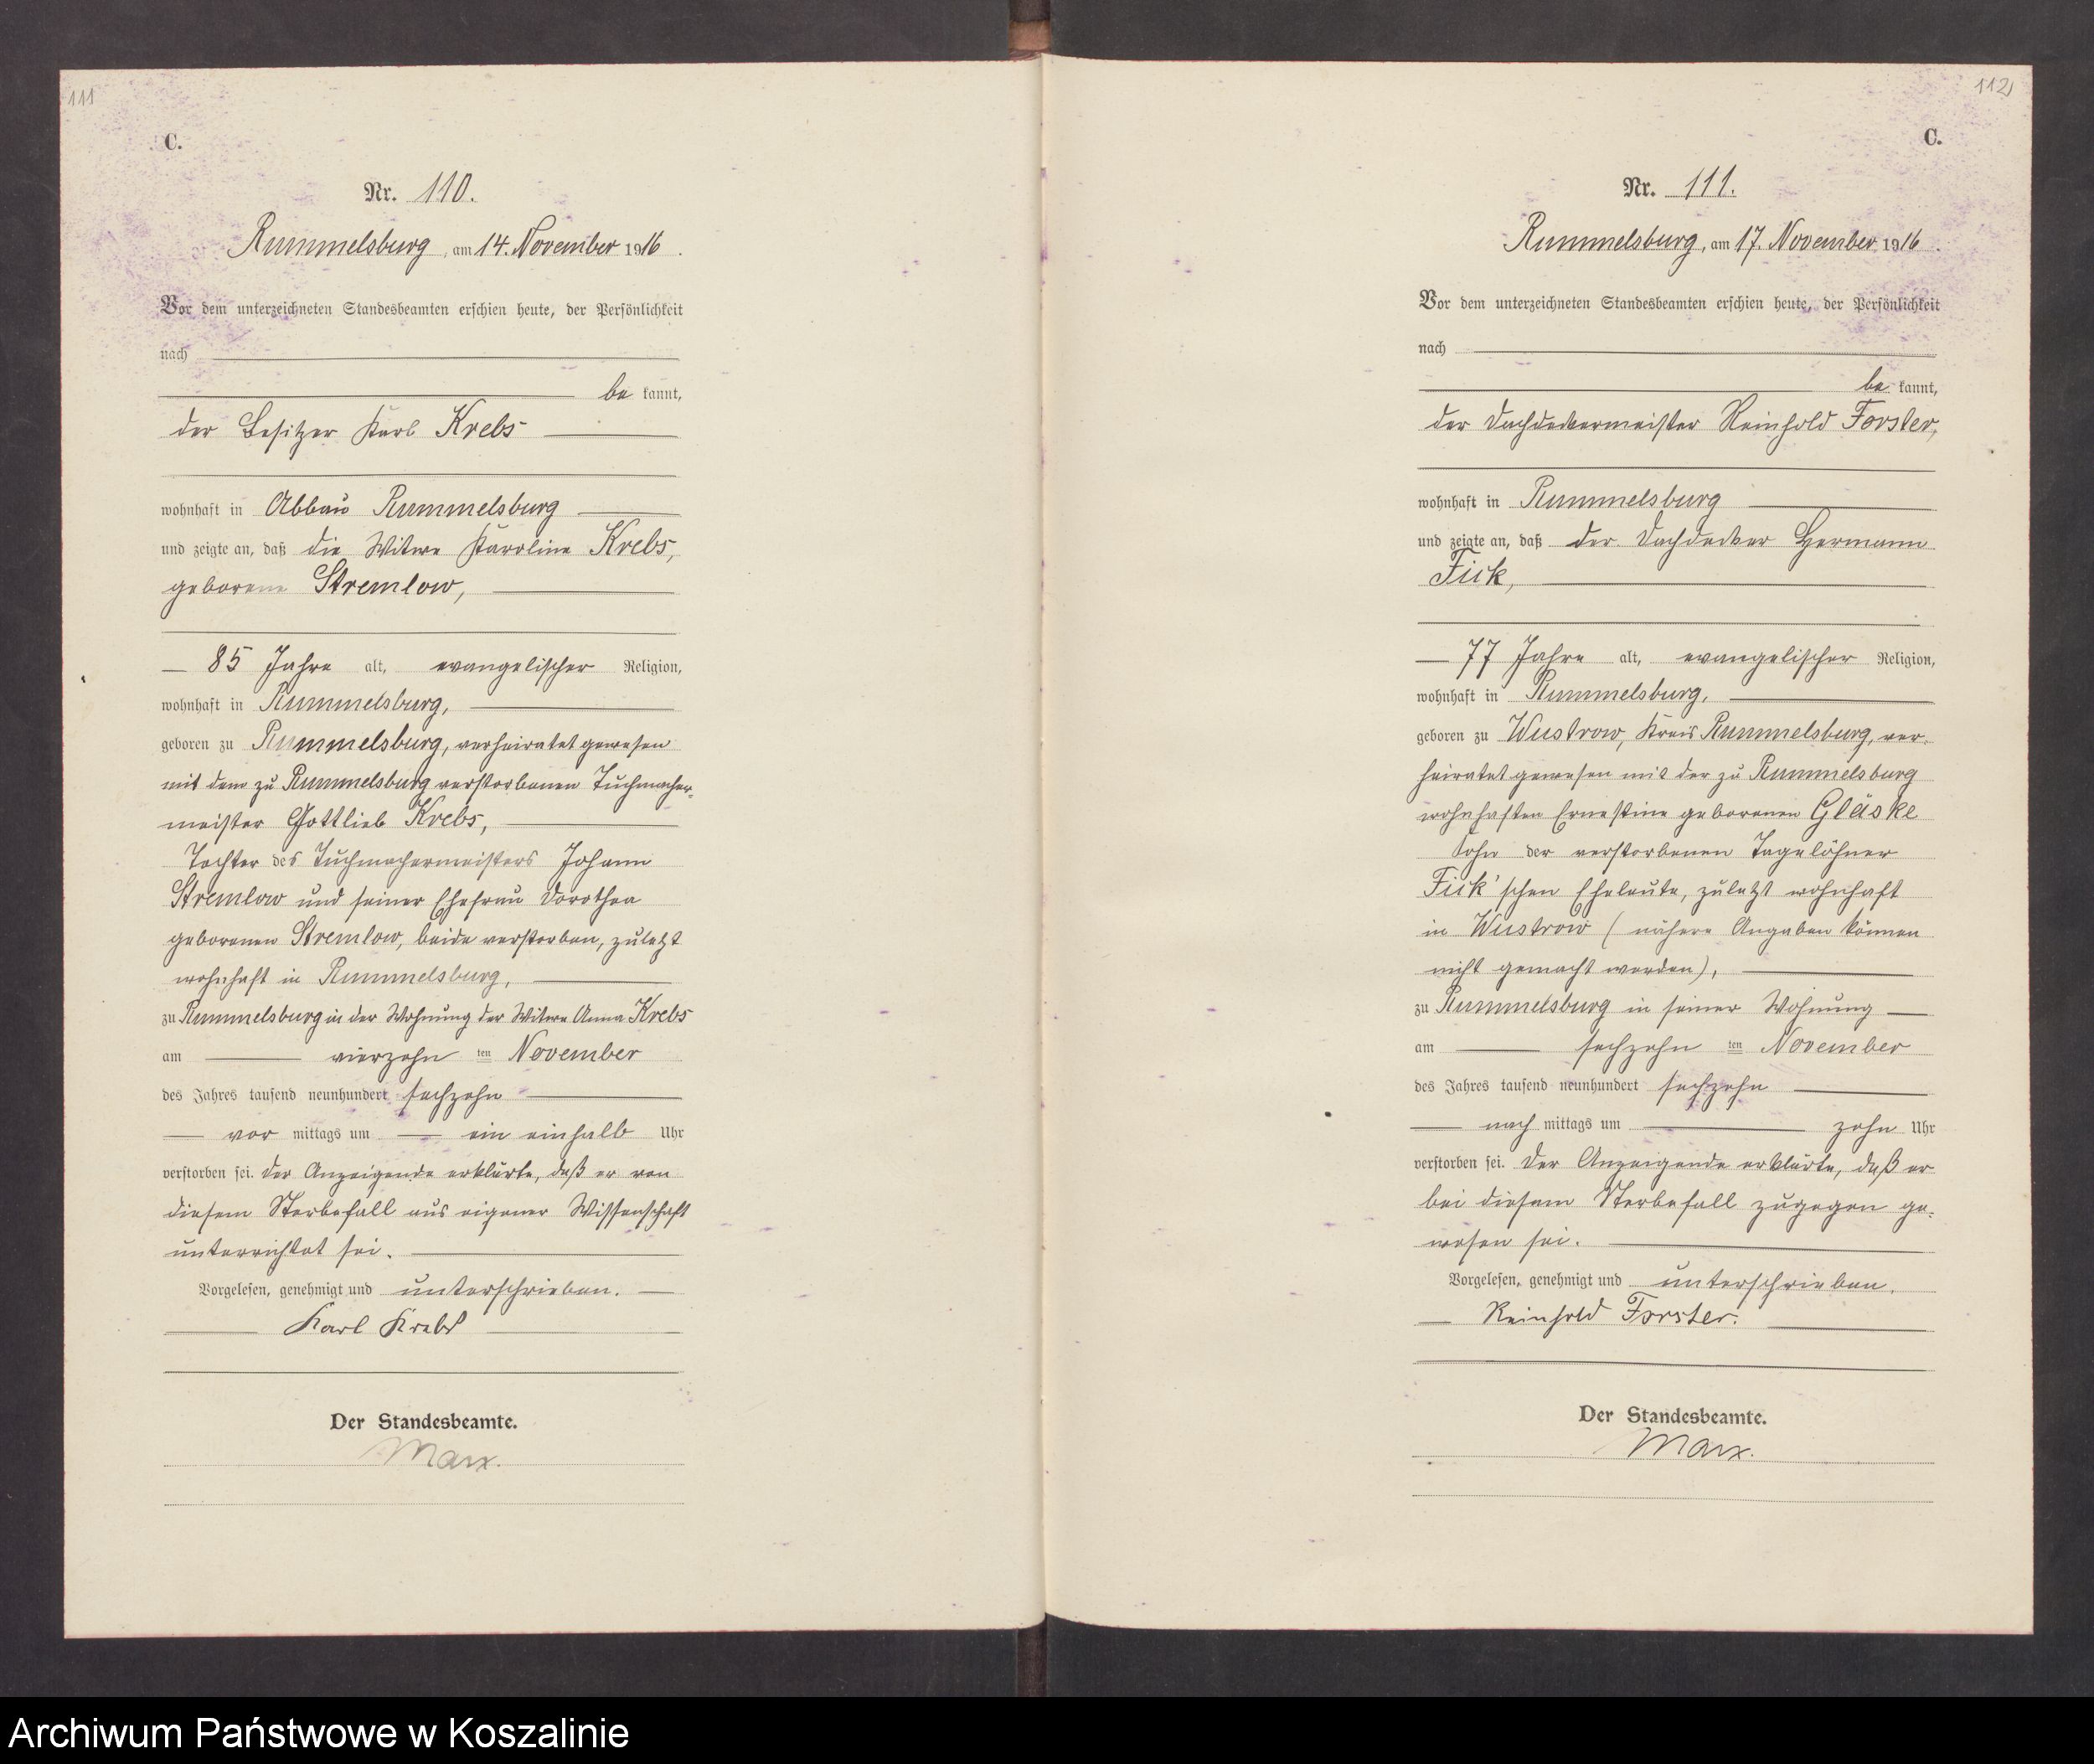 111
C.
Nr. 110.
Rummelsburg, am 14. November 1916.
Vor dem unterzeichneten Standesbeamten erschien heute, der Persönlichkeit
nach
be kannt,
der Besitzer Karl Krebs
wohnhaft in Abbau Rummelsburg
und zeigte an, daß die Witwe Karoline Krebs,
geborene Stremlow,
85 Jahre alt, evangelischer Religion,
wohnhaft in Rummelsburg,
geboren zu Rummelsburg, verheiratet gewesen
mit dem zu Rummelsburg verstorbenen Tuchmacher-
meister Gottlieb Krebs,
Tochter des Tuchmachermeisters Johann
Stremlow und seiner Ehefrau Dorothea
geborenen Stremlow, beide verstorben, zuletzt
wohnhaft in Rummelsburg,
zu Rummelsburg in der Wohnung der Witwe Anna Krebs
am vierzehn ten November
des Jahres tausend neunhundert sechzehn
vor mittags um ein einhalb Uhr
verstorben sei. Der Anzeigende erklärte, daß er von
diesem Sterbefall aus eigener Wissenschaft
unterrichtet sei.
Vorgelesen, genehmigt und unterschrieben.
Karl Krebs
Der Standesbeamte.
Marx.
112
C.
Nr. 111.
Rummelsburg, am 17. November 1916.
Vor dem unterzeichneten Standesbeamten erschien heute, der Persönlichkeit
nach
be kannt,
der Dachdeckermeister Reinhold Forster,
wohnhaft in Rummelsburg
und zeigte an, daß der Dachdecker Hermann
Fick,
77 Jahre alt, evangelischer Religion,
wohnhaft in Rummelsburg,
geboren zu Wustrow, Kreis Rummelsburg, ver-
heiratet gewesen mit der zu Rummelsburg
wohnhaften Ernestine geborenen Gläske
Sohn der verstorbenen Tagelöhner
Fick'schen Eheleute, zuletzt wohnhaft
in Wustrow (nähere Angaben können
nicht gemacht werden),
zu Rummelsburg in seiner Wohnung
am sechzehn ten November
des Jahres tausend neunhundert sechzehn
nach mittags um zehn Uhr
verstorben sei. Der Anzeigende erklärte, daß er
bei diesem Sterbefall zugegen ge-
wesen sei.
Vorgelesen, genehmigt und unterschrieben.
Reinhold Forster.
Der Standesbeamte.
Marx.
Archiwum Państwowe w Koszalinie